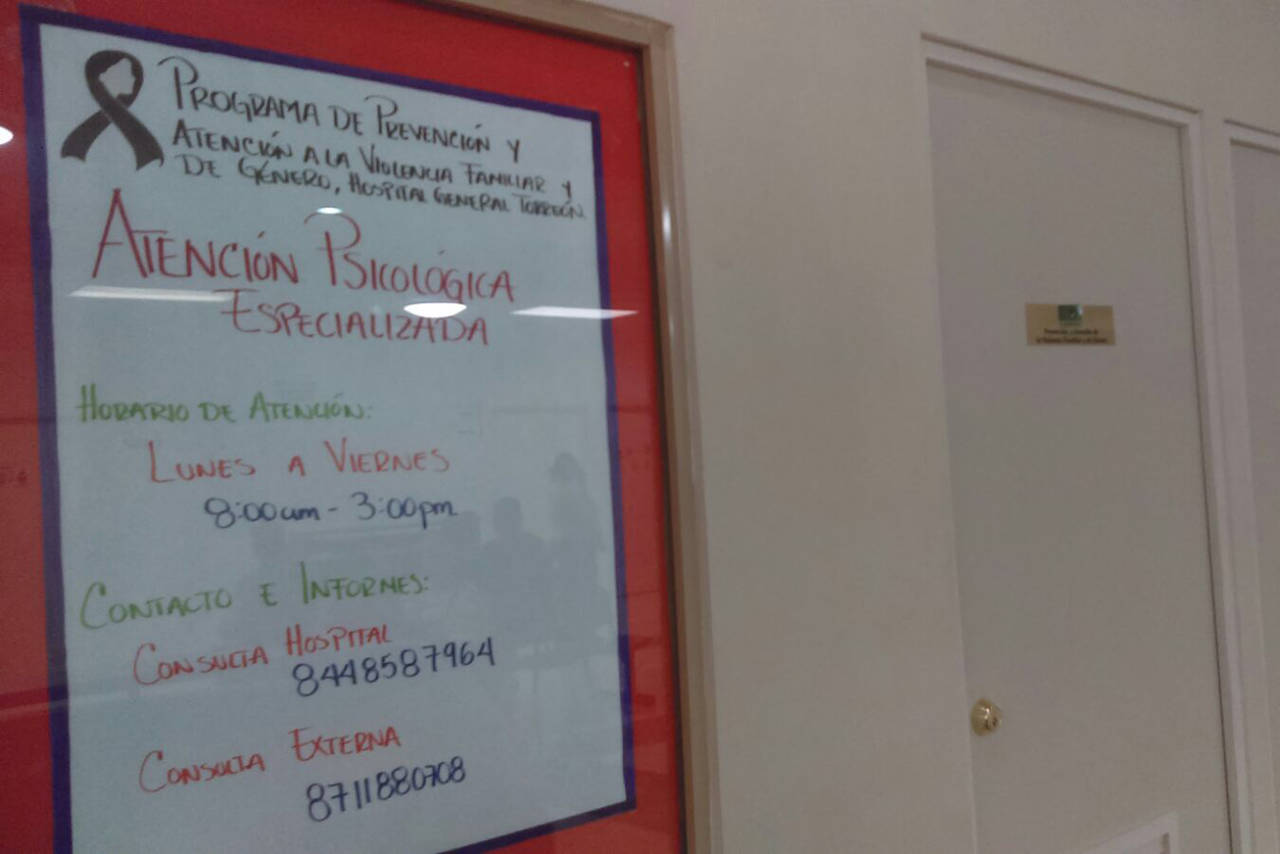 PROGRAMA DE PREVENCIÓN Y
ATENCIÓN A LA VIOLENCIA FAMILIAR Y
DE GÉNERO, HOSPITAL GENERAL TORREÓN
ATENCIÓN PSICOLÓGICA
ESPECIALIZADA
HORARIO DE ATENCIÓN:
LUNES A VIERNES
8:00am - 3:00pm
CONTACTO E INFORMES:
CONSULTA HOSPITAL
8448587964
CONSULTA EXTERNA
8711880708